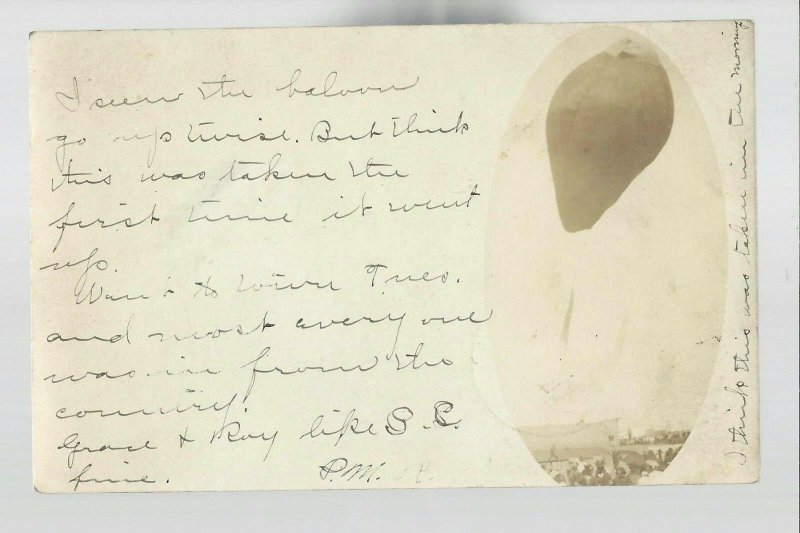 I seen the baloon
go up twise. But think
this was taken the
first time it went
up.
Went to town Tues.
and most every one
was in from the
country.
Grace & Roy like S. C.
fine. P.M.
I think this was taken in the morning